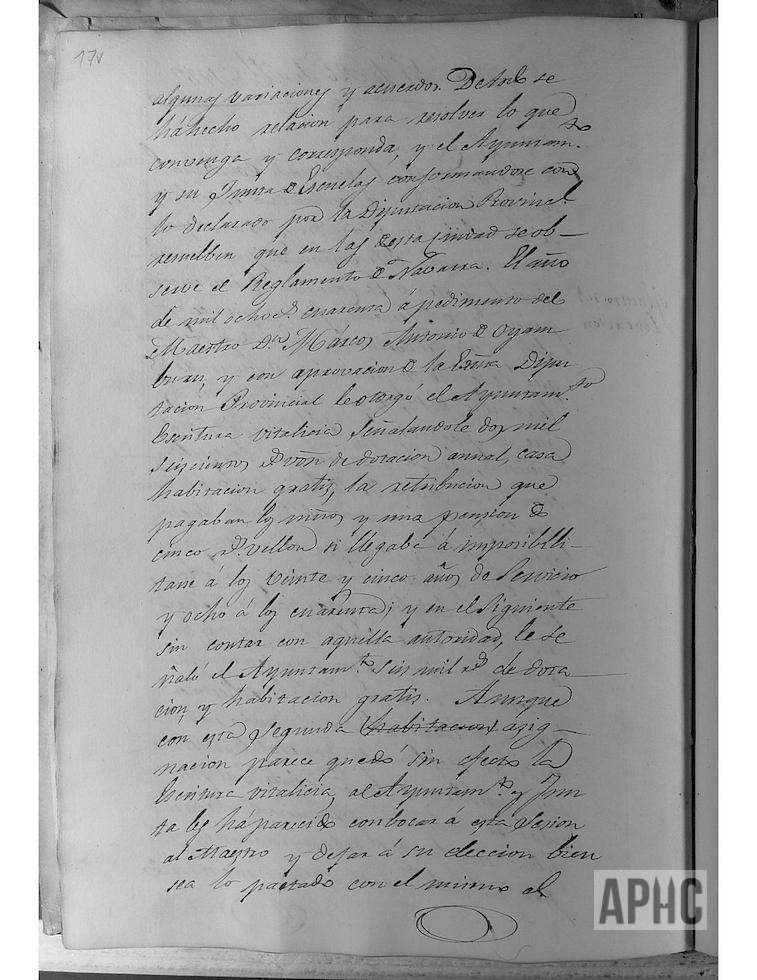 17v
algunas variaciones y acuerdos. De todo se
há hecho relacion para resolver lo que
convenga y corresponda, y el Ayuntam.to
y su Junta de Escuelas conformandose con
lo declarado por la Diputacion Provincl.
resuelben que en las de esta ciudad se ob-
serve el Reglamento de Navarra. El año
de mil ochocs. cuarenta á pedimento del
Maestro Dn. Márcos Antonio de Oyam-
buru, y con aprovacion de la Exma Dipu
tacion Provincial le otorgó el Ayuntam.to
Escritura vitalicia señalandole dos mil
seiscientos rs. von de dotacion annal, casa
habitacion gratis, la retribucion que
pagaban los niños y una pension de
cinco rs. vellon si llegaba á imposibili-
tarse á los veinte y cinco años de Servicio
y ocho á los cuarenta; y en el siguiente
sin contar con aquella autoridad, le se
ñaló el Ayuntam.to seis mil rs. de dota
cion y habitacion gratis. Aunque
con esta segunda (habitacion) asig-
nacion parece quedó sin efecto la
Escritura vitalicia, al Ayuntam.to y Jun
ta les há parecido conbocar á esta Sesion
al Maestro y dejar á su eleccion bien
sea lo pactado con el mismo el
APHC